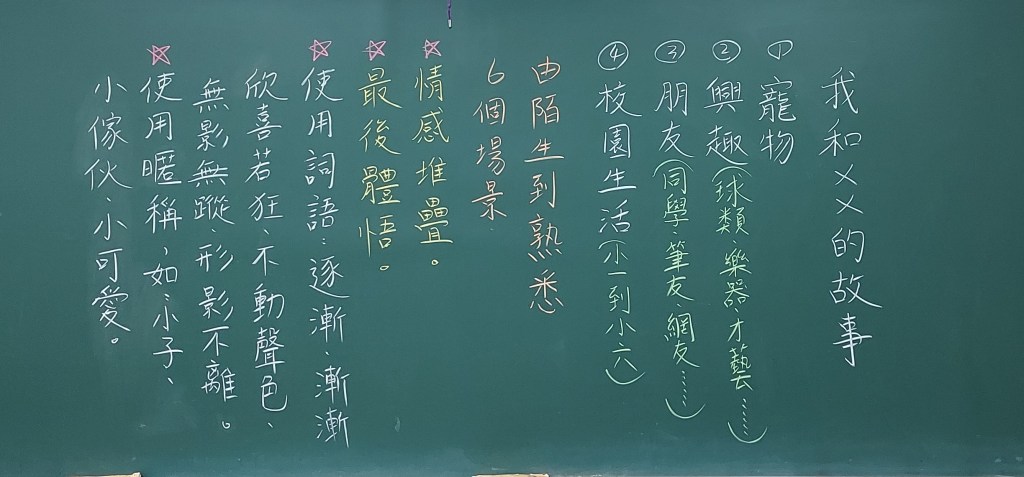 我和××的故事
①寵物
②興趣(球類、樂器、才藝……)
③朋友(同學、筆友、網友……)
④校園生活(小一到小六)
由陌生到熟悉
6個場景
☆情感堆疊。
☆最後體悟。
☆使用詞語:逐漸、漸漸
欣喜若狂、不動聲色、
無影無蹤、形影不離。
☆使用暱稱,如:小子、
小傢伙、小可愛。